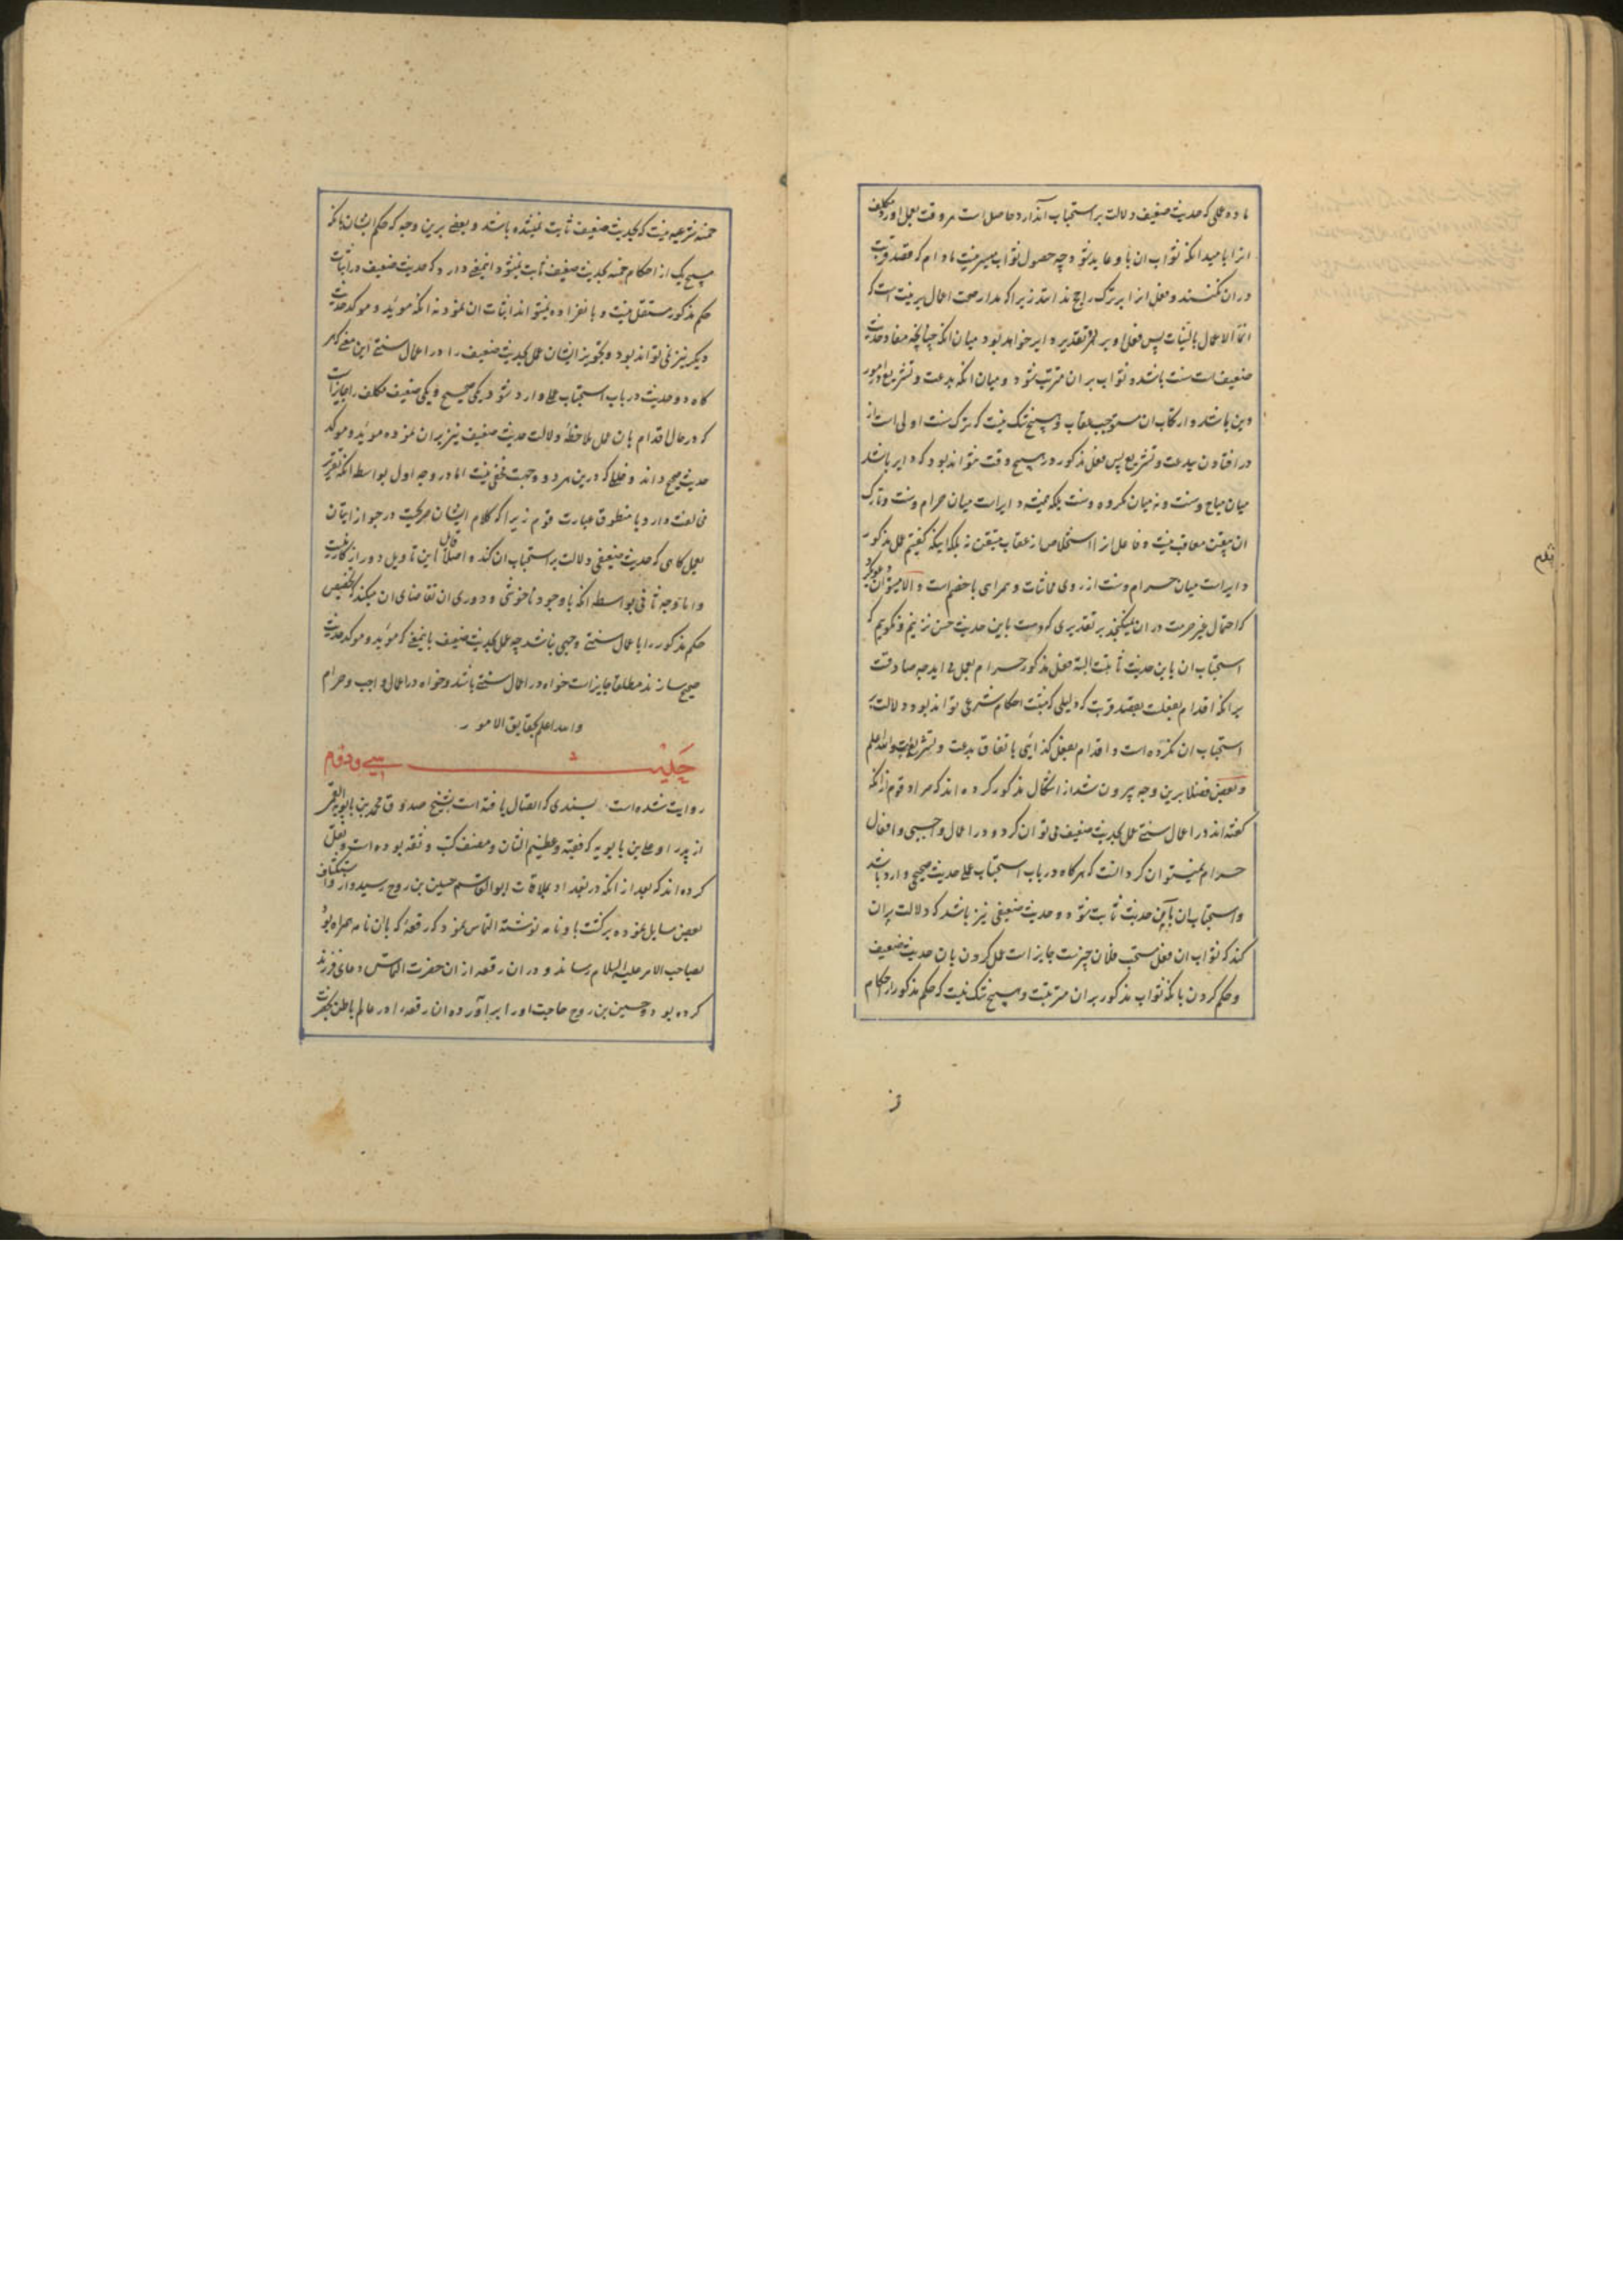 ماده عملی که حدیث ضعیف دلالت بر استحباب آن دارد حاصل است هر وقت بعمل اورد مکلف
انرا بامید انکه ثواب ان باو عاید شود چه حصول ثواب میسر نیست مادام که قصد قربت
در ان نکنند و فعل انرا بر ترک راجح ندانند زیرا که مدار صحت اعمال بر نیت است که
انما الاعمال بالنیات پس فعل او بر هر تقدیر دایر خواهد بود میان انکه چنانچه مفاد حدیث
ضعیف است سنت باشد و ثواب بر ان مترتب شود و میان انکه بدعت و تشریع در امور
دین باشد و ارتکاب ان مستوجب عقاب و هیچ شک نیست که ترک سنت اولی است از
در افتادن ببدعت و تشریع پس فعل مذکور در هیچ وقت نتواند بود که دایر باشد
میان مباح و سنت و نه میان مکروه و سنت بلکه همیشه دایر است میان حرام و سنت و تارک
ان متیقن معاقب نیست و فاعل انرا استخلاص از عقاب متیقن نه بلکه اینکه گفتیم عمل مذکور
دایر است میان حرام و سنت از روی مماشات و همراهی با خصم است و الا میتوان
که احتمال غیر حرمت در ان نمیگنجد بر تقدیری که دست باین حدیث حسن نزنیم و نگوییم که
استحباب ان باین حدیث ثابت البته فعل مذکور حرام بعمل می اید چه صادقست
برانکه اقدام بفعلیست بقصد قربت که دلیلی که مثبت احکام شرعی تواند بود دلالت بر
استحباب ان نکرده است و اقدام بفعل کذائی باتفاق بدعت و تشریع است والله اعلم
و بعضی فضلا برین وجه بیرون شد از اشکال مذکور کرده اند که مراد قوم از انکه
گفته اند در اعمال سنتی عمل بحدیث ضعیف می توان کرد و در اعمال واجبی و افعال
حرام نمیتوان کرد انست که هرگاه در باب استحباب عملی حدیث صحیحی وارد باشد
و استحباب ان باین حدیث ثابت شود و حدیث ضعیفی نیز باشد که دلالت بران
کند که ثواب ان فعل مستحب فلان چیزست جایز است عمل کردن بان حدیث ضعیف
و حکم کردن بانکه ثواب مذکور بر ان مترتبست و هیچ شک نیست که حکم مذکور از احکام
خمسه شرعیه نیست که بحدیث ضعیف ثابت نمیشده باشد و بعضی برین وجه که حکم ایشان بانکه
هیچ یک از احکام خمسه بحدیث ضعیف ثابت نمیشود اینمعنی دارد که حدیث ضعیف در اثبات
حکم مذکور مستقل نیست و بانفراده نمیتواند اثبات ان نمود نه انکه موید و موکد حدیث
دیگر نیز نمی تواند بود و تجویز ایشان عمل بحدیث ضعیف را در اعمال سنتی این معنی که هر
گاه دو حدیث در باب استحباب عملی وارد شود یکی صحیح و یکی ضعیف مکلف را جایز است
که در حال اقدام بان عمل ملاحظهٔ دلالت حدیث ضعیف نیز بران نموده موید و موکد
حدیث صحیح داند و خللها که درین هر دو وجهست مخفی نیست اما در وجه اول بواسطه انکه تقریر
مخالفت دارد با منطوق عبارت قوم زیرا که کلام ایشان صریحست در جواز اتیان
بعمل گاهی که حدیث ضعیفی دلالت بر استحباب ان کند و اصلا قابل این تاویل دور از کار نیست
و اما توجیه ثانی بواسطه انکه باوجود ناخوشی و دوری ان تقاضای ان میکند که تخصیص
حکم مذکور را باعمال سنتی وجهی نباشد چه عمل بحدیث ضعیف باینمعنی که موید و موکد حدیث
صحیح سازند مطلقا جایز است خواه در اعمال سنتی باشد و خواه در اعمال واجب و حرام
والله اعلم بحقایق الامور
حدیث سی و دوم
روایت شده است بسندی که اتصال یافته است بشیخ صدوق محمد بن بابویه القمی
از پدر او علی بن بابویه که فقیه و عظیم الشان و مصنف کتب و ثقه بوده است و نقل
کرده اند که بعد از انکه در بغداد بملاقات ابوالقاسم حسین بن روح رسید و از او استکشاف
بعضی مسایل نموده برگشت باو نامه نوشته التماس نمود که رقعهٔ که بان نامه همراه بود
بصاحب الامر علیه السلام رساند و در ان رقعه از ان حضرت التماس دعای فرزند
کرده بود و حسین بن روح حاجت او را برآورده ان رقعه را در عالم باطن بحضرت